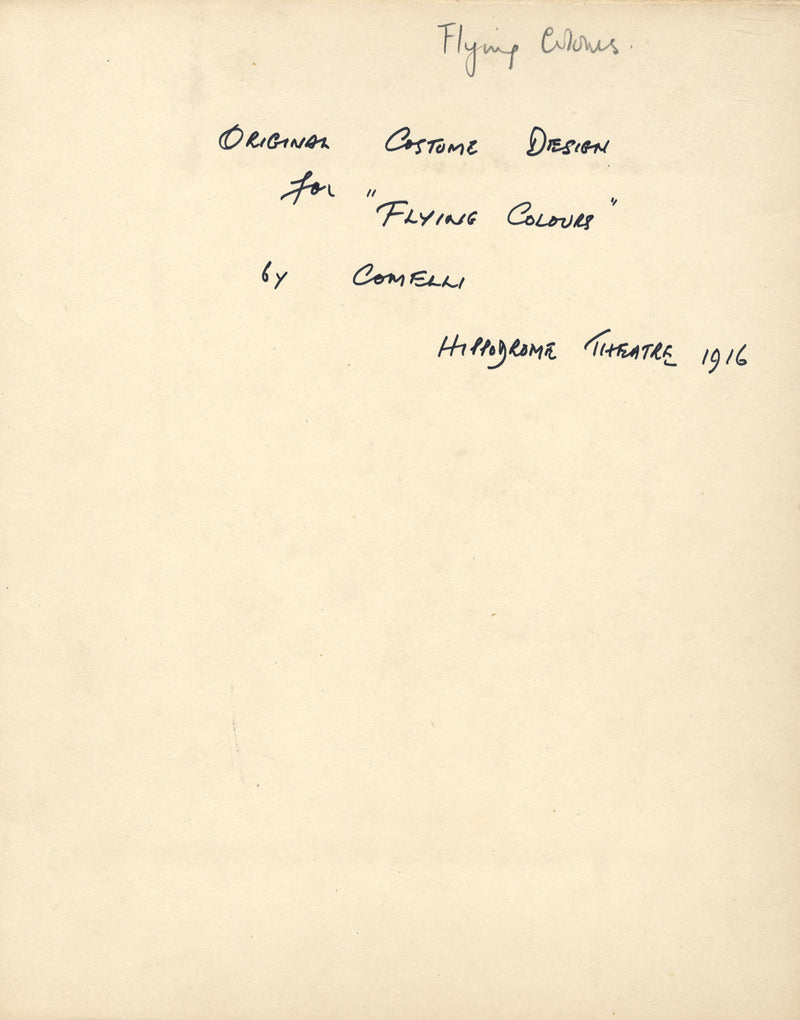 Flying Colours.
ORIGINAL COSTUME DESIGN
for "FLYING COLOURS"
by COMELLI
HIPPODROME THEATRE 1916